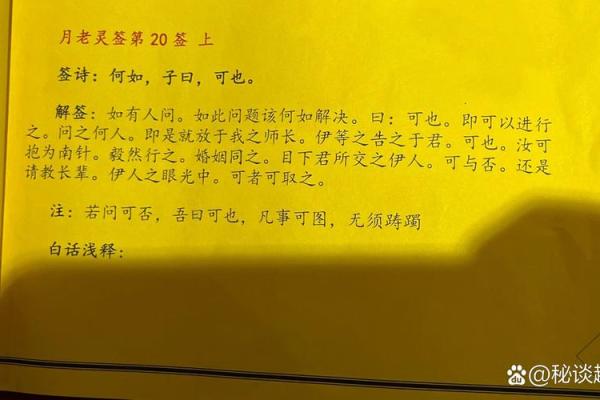 月老灵签第20签 上
签诗：何如，子曰，可也。
解签：如有人问。如此问题该何如解决。曰：可也。即可以进行
之。问之何人。即是就放于我之师长。伊等之告之于君。可也。汝可
抱为南针。毅然行之。婚姻同之。目下君所交之伊人。可与否。还是
请教长辈。伊人之眼光中。可者可取之。
注：若问可否，吾曰可也，凡事可图，无须踌躇
白话浅释：
@秘谈